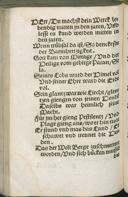 HErr/ Du machest dein Werck le-
bendig mitten in den jaren/ Vnd
lesst es kund werden mitten in
den jaren.
Wenn trübsal da ist/ So denckestu
der Barmhertzigkeit.
Gott kam von Mittage/ Vnd der
Heilige vom gebirge Paran/ Se-
la.
Seines Lobs ward der Himel vol/
Vnd seiner Ehre ward die Erde
vol.
Sein glantz war wie Liecht/ glen-
tzen giengen von seinen Henden/
Daselbs war heimlich seine
Macht.
Für jm her gieng Pestilentz/ Vnd
Plage gieng aus/ wo er hin trat.
Er stund vnd mas das Land/ Er
schawet vnd zurtrennet die Hei-
den.
Das der Welt Berge zuschmettert
worden/ Vnd sich bücken musten